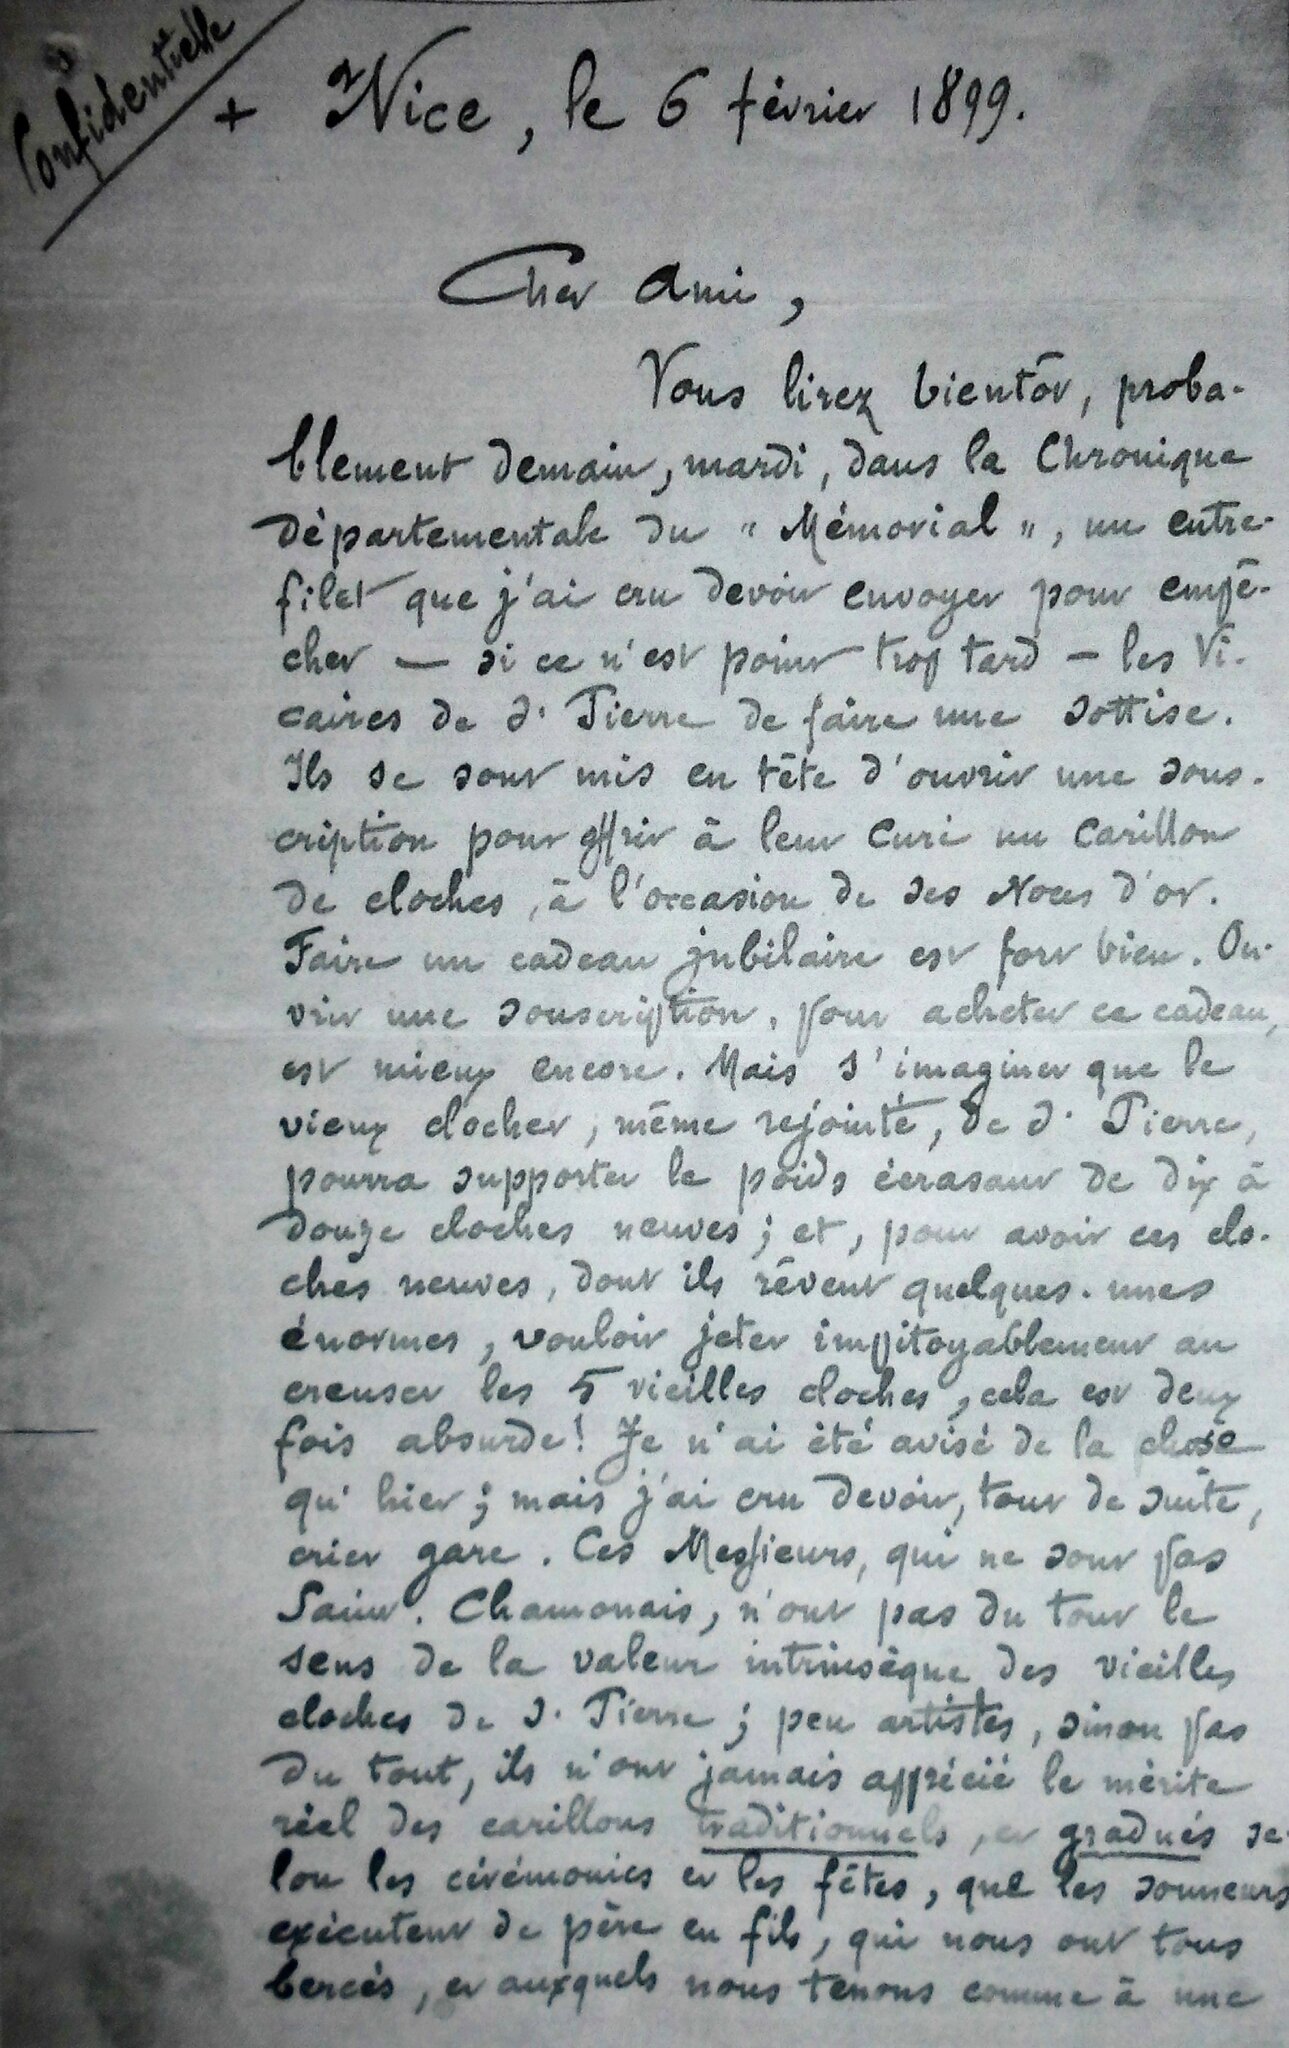 Confidentielle
+ Nice, le 6 février 1899.
Cher Ami,
Vous lirez bientôt, proba-
blement demain, mardi, dans la Chronique
départementale du " Mémorial ", un entre-
filet que j'ai cru devoir envoyer pour empê-
cher — si ce n'est point trop tard — les Vi-
caires de S. Pierre de faire une sottise.
Ils se sont mis en tête d'ouvrir une sous-
cription pour offrir à leur Curé un Carillon
de cloches, à l'occasion de ses Noces d'or.
Faire un cadeau jubilaire est fort bien. Ou-
vrir une souscription, pour acheter ce cadeau,
est mieux encore. Mais s'imaginer que le
vieux clocher, même rejointé, de S. Pierre,
pourra supporter le poids écrasant de dix à
douze cloches neuves ; et, pour avoir ces clo-
ches neuves, dont ils rêvent quelques-unes
énormes, vouloir jeter impitoyablement au
creuser les 5 vieilles cloches, cela est deux
fois absurde ! Je n'ai été avisé de la chose
qu'hier ; mais j'ai cru devoir, tout de suite,
crier gare. Ces Messieurs, qui ne sont pas
Saint-Chamonais, n'ont pas du tout le
sens de la valeur intrinsèque des vieilles
cloches de S. Pierre ; peu artistes, sinon pas
du tout, ils n'ont jamais apprécié le mérite
réel des carillons traditionnels, et gradués se-
lon les cérémonies et les fêtes, que les sonneurs
exécutent de père en fils, qui nous ont tous
bercés, et auxquels nous tenons comme à une